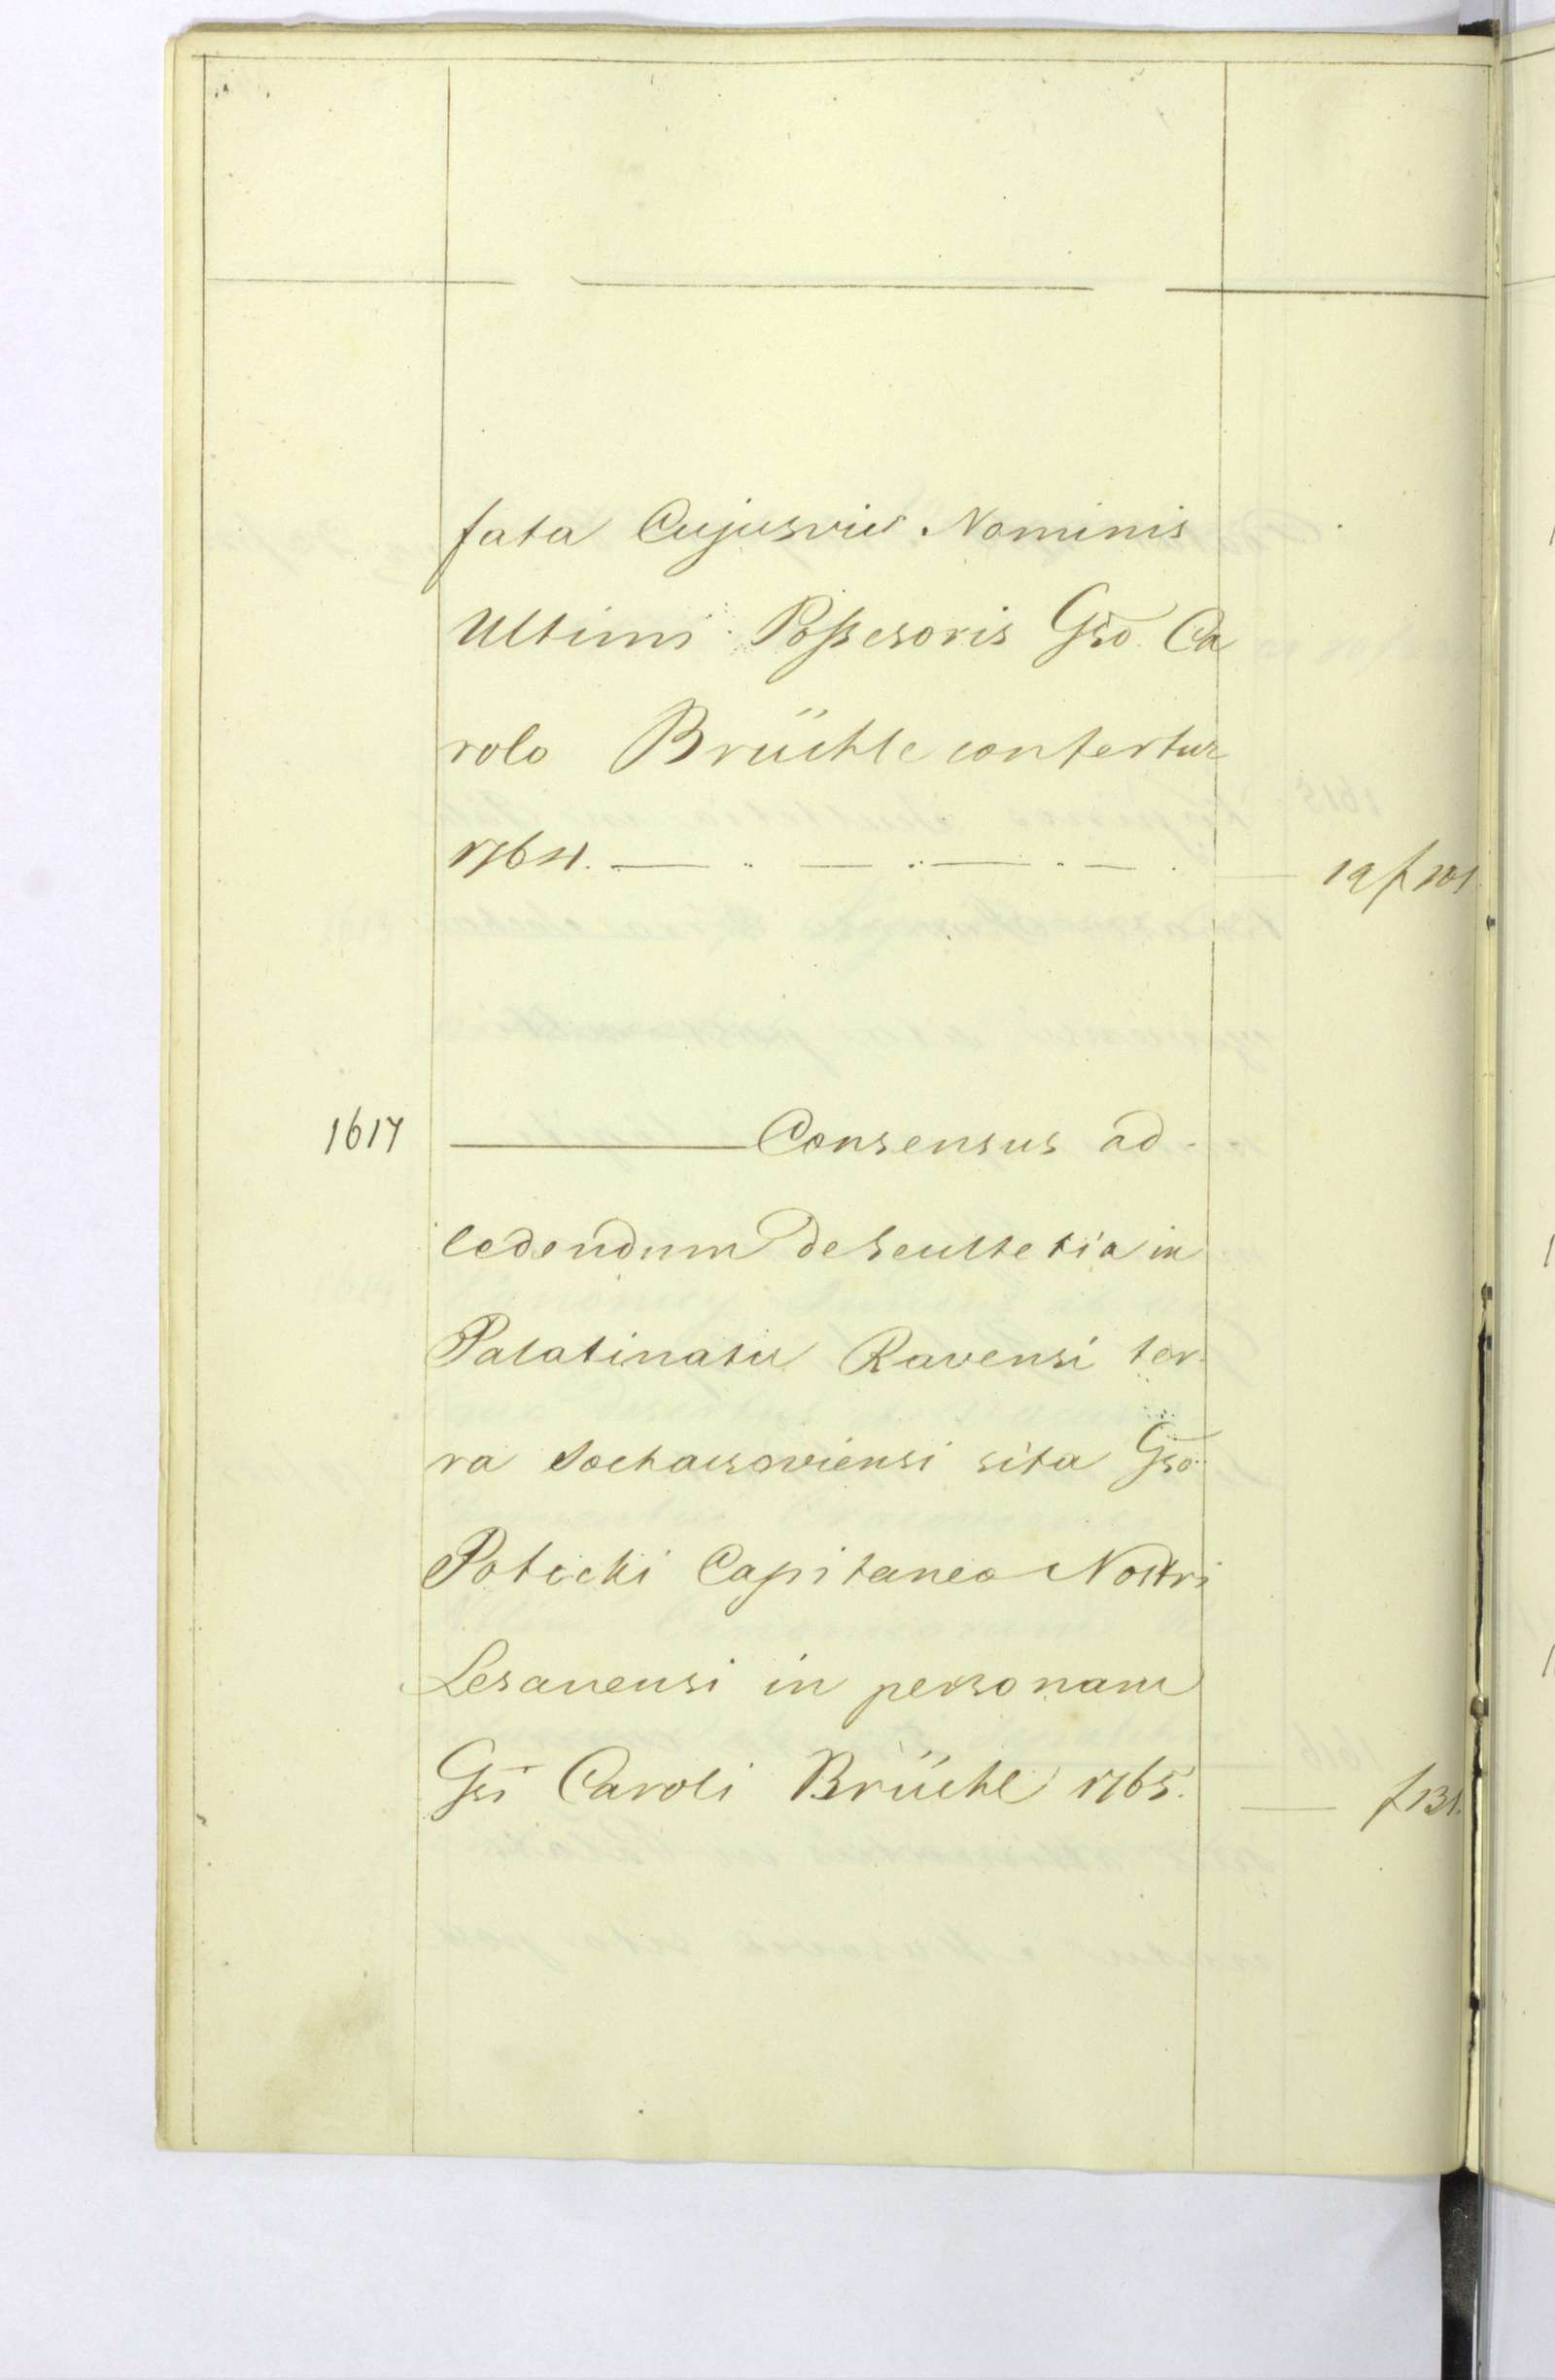 fata Cujusvis Nominis
Ultimi Possesoris Gso. Ca
rolo Brüchle confertur
1764. — .. — .. — . — . — 19 f 101
1617 — Consensus ad
cedendum de Scultetia in
Palatinatu Ravensi ter-
ra Sochaisoviensi sita Gso
Potocki Capitaneo Nostri
Lesanensi in personam
Gsi Caroli Brüchl 1765. — f 131.